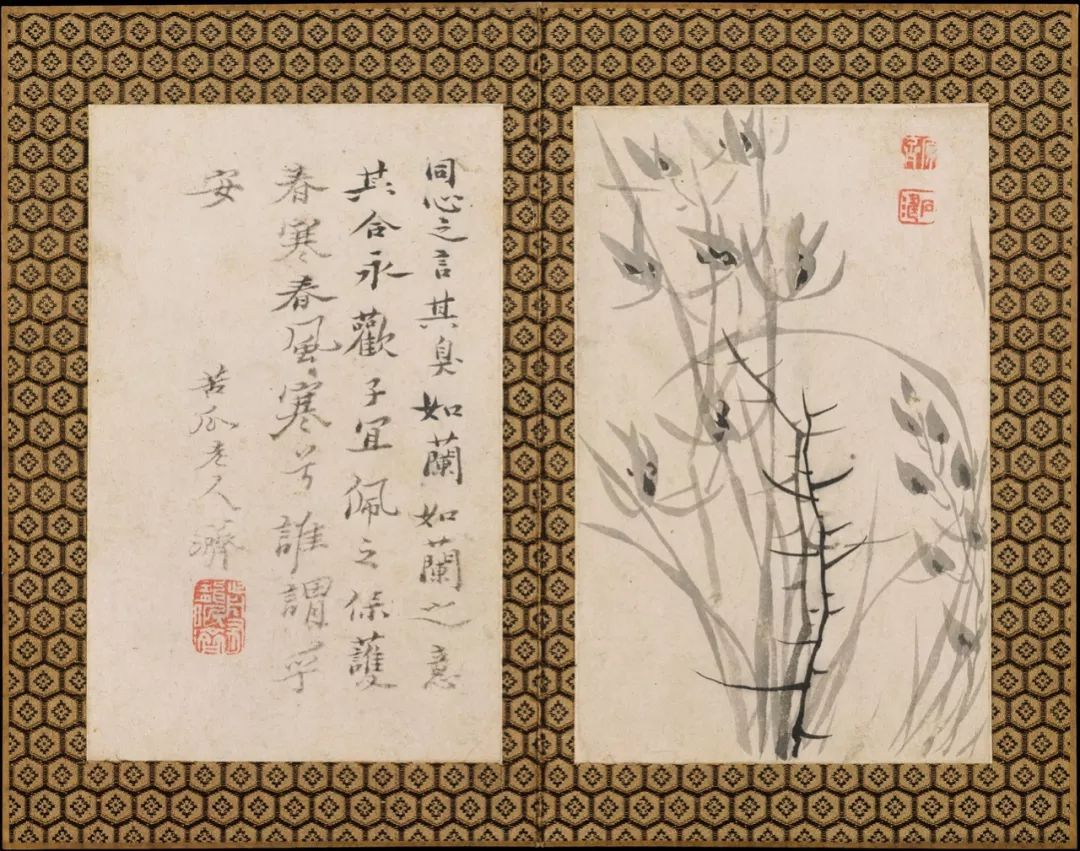 同心之言其臭如蘭如蘭之意
共合永歡子宜佩之保護
春寒春風寒兮誰謂乎
安
苦瓜老人濟
石濤